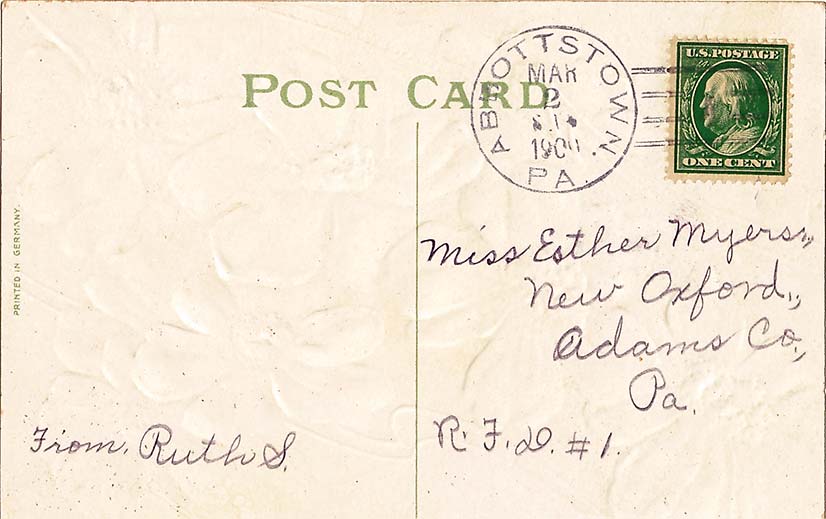 POST CARD
ABBOTTSTOWN
MAR
2
PA.
U.S.POSTAGE
ONE CENT
Miss Esther Myers.,
New Oxford.,
Adams Co.,
Pa.
R.F.D. #1.
From, Ruth S.
PRINTED IN GERMANY.